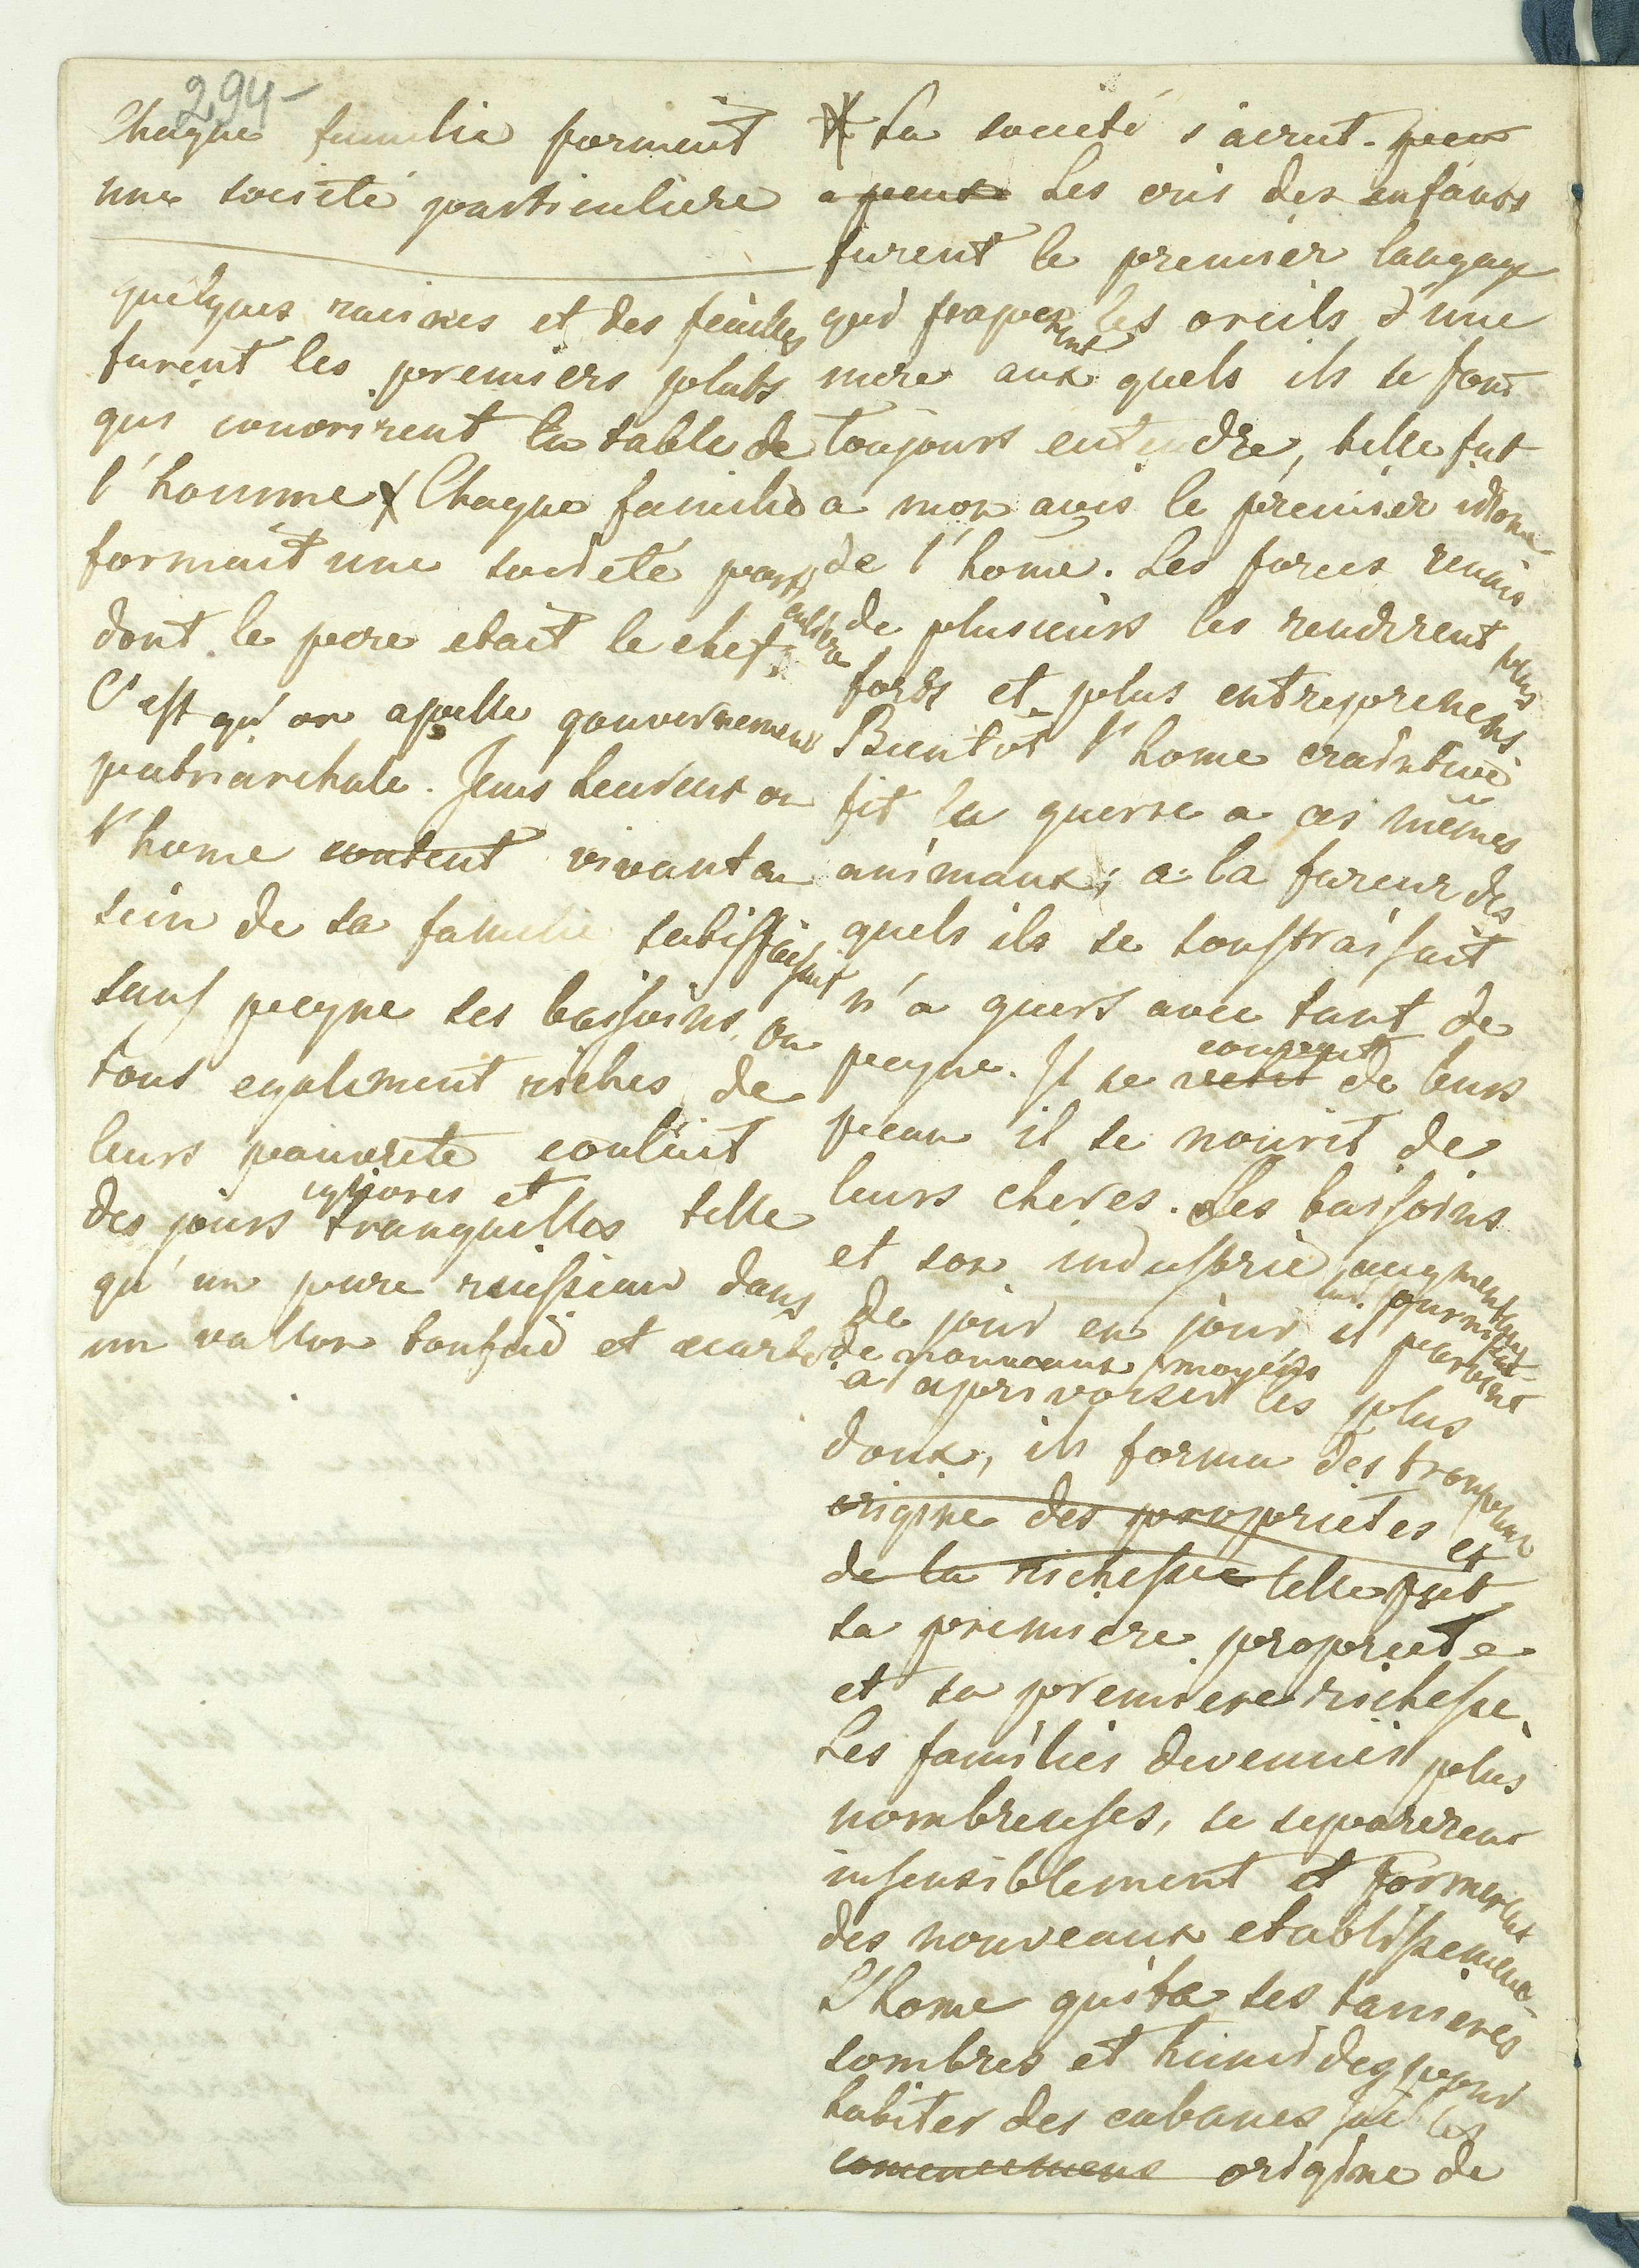 294-
Chaque familie forment
une societé particuliere
quelques racines et des feuilles
furent les premiers plats
qui couvrirent la table de
l'homme Chaque familie
formait une societé particuliere
dont le pere etait le chef.
C'est qu'on apelle gouvernement
patriarchale. Jems heureux ou
l'home content vivant au
sein de sa familie satisffaisait
sans peyne ses baisoins, ou
tous egalement riches de
leurs pauvreté coulait
des jours ignores et tranquilles telle
qu'un pure ruisseau dans
un vallon toufuid et ecarté
La societé s'acrut. peu
a peu Les cris des enfants
furent le premier langage
qui fraperent les oreils d'une
mere aux quels ils se font
toujours entendre, telle fut
a mon avis le premier idiome
de l'home. Les forces reunies
de plusieurs les rendirent plus
forts et plus entreprenens
Bientôt l'home craintive
fit la guerre a ces mêmes
animaux; a la fureur des
quels ils se soustraisait
n'a guers avec tant de
peyne. Il se vetit couvrit de leurs
peau il se nourit de
leurs cheres. Les baisoins
et son industrie augmentent
de jour en jour lui fournissent
de nouveaux moyens il parvient
a aprivoiser les plus
doux, ils forma des troupeaux
origine des proprietes et
de la richesse telle fut
sa premiere propriete
et sa premiere richesse.
Les families devenues plus
nombreuses, se separerent
insensiblement et formerent
des nouveaux etablissemens
L'home quita ses tanieres
sombres et humides pour
habiter des cabanes
comencemens origine de